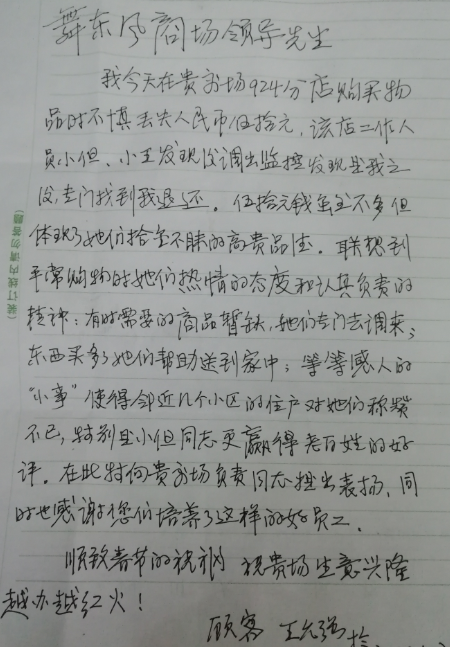 舞东风商场领导先生
我今天在贵商场924分店购买物
品时不慎丢失人民币伍拾元，该店工作人
员小但、小王发现后调出监控发现是我之
后，专门找到我退还。伍拾元钱虽然不多但
体现了她们拾金不昧的高贵品德。联想到
平常购物时她们热情的态度和认真负责的
精神：有时需要的商品暂缺，她们专门去调来；
东西买多了她们帮助送到家中；等等感人的
“小事”使得邻近几个小区的住户对她们称赞
不已，特别是小但同志更赢得老百姓的好
评。在此特向贵商场负责同志提出表扬，同
时也感谢您们培养了这样的好员工。
顺致春节的祝祝 祝贵场生意兴隆
越办越红火！
顾客 王
（装订线内请勿答题）